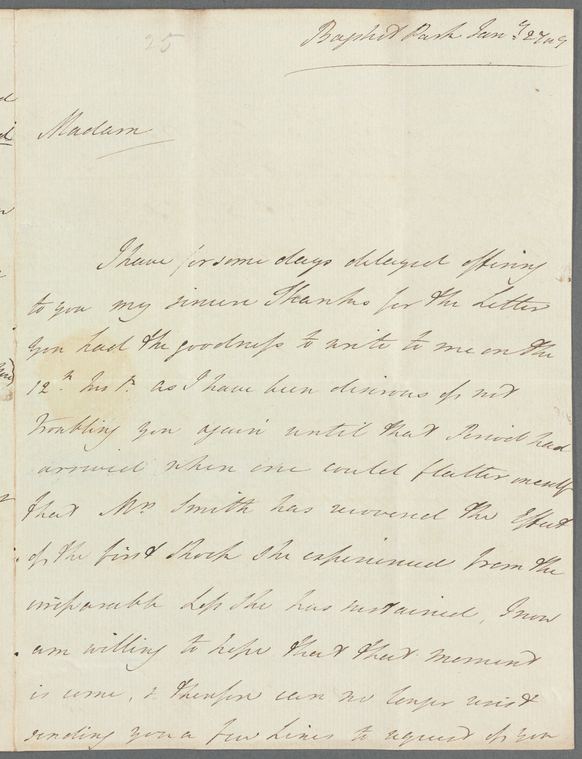 25
Park Jan.y 27
Madam
I have for some days delayed offering
to you my sincere Thanks for the Letter
you had the goodness to write to me on the
12.th Inst. as I have been desirous of not
troubling you again until that Period had
arrived when one could flatter oneself
that Mrs Smith has recovered the Effect
of the first Shock she experienced from the
irreparable Loss she has sustained, I now
am willing to hope that that moment
is come, & therefore can no longer resist
sending you a few Lines to request of you